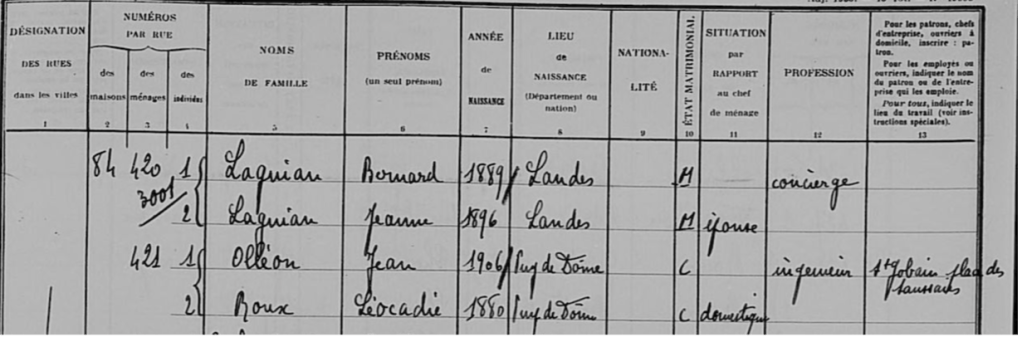 DÉSIGNATION
DES RUES
dans les villes
1
NUMÉROS
PAR RUE
des
maisons
2
des
ménages
3
des
individus
4
NOMS
DE FAMILLE
5
PRÉNOMS
(un seul prénom)
6
ANNÉE
de
NAISSANCE
7
LIEU
de
NAISSANCE
(Département ou
nation)
8
NATIONA-
LITÉ
9
ÉTAT MATRIMONIAL
10
SITUATION
par
RAPPORT
au chef
de ménage
11
PROFESSION
12
Pour les patrons, chefs
d'entreprise, ouvriers à
domicile, inscrire : pa-
tron.
Pour les employés ou
ouvriers, indiquer le nom
du patron ou de l'entre-
prise qui les emploie.
Pour tous, indiquer le
lieu du travail (voir ins-
tructions spéciales).
13
84 420 1 Laguian Bernard 1889 Landes M concierge
3001
2 Laguian Jeanne 1896 Landes M épouse
421 1 Olléon Jean 1906 Puy de Dôme C ingenieur St Gobain place des
Saussaies
2 Roux Léocadie 1880 Puy de Dôme C domestique